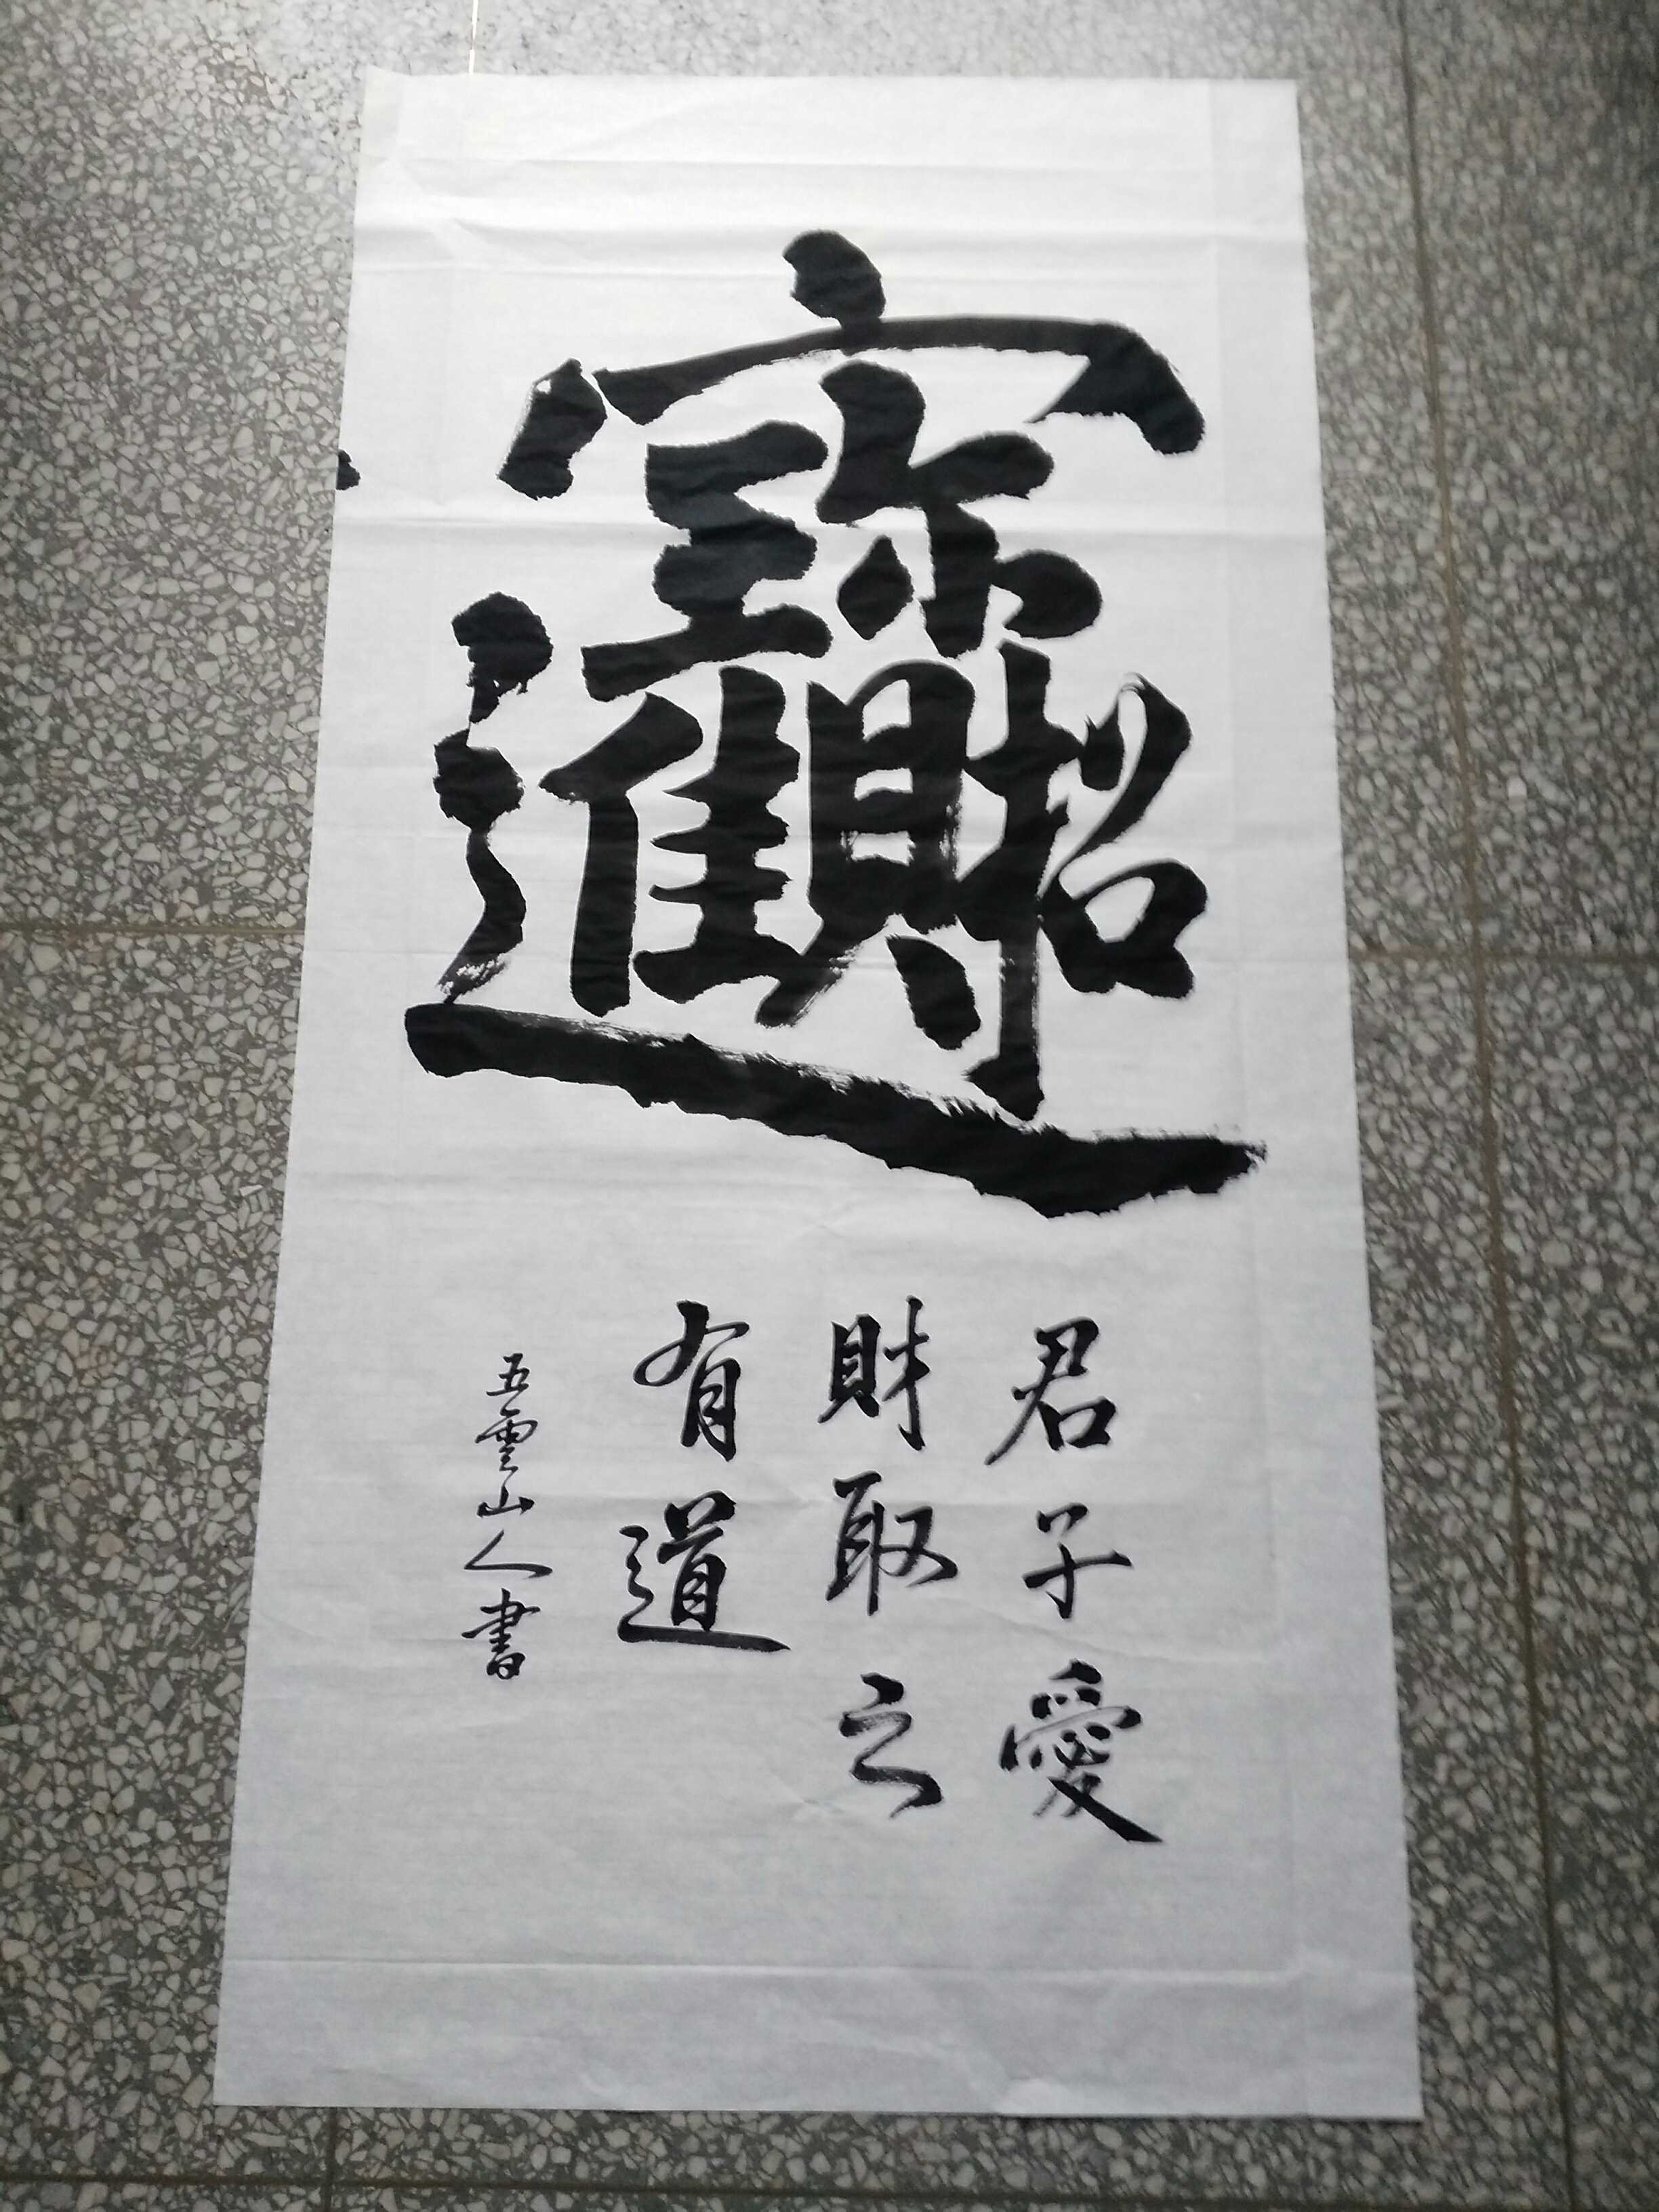 招財進寳
君子愛
財取之
有道
五雲山人書